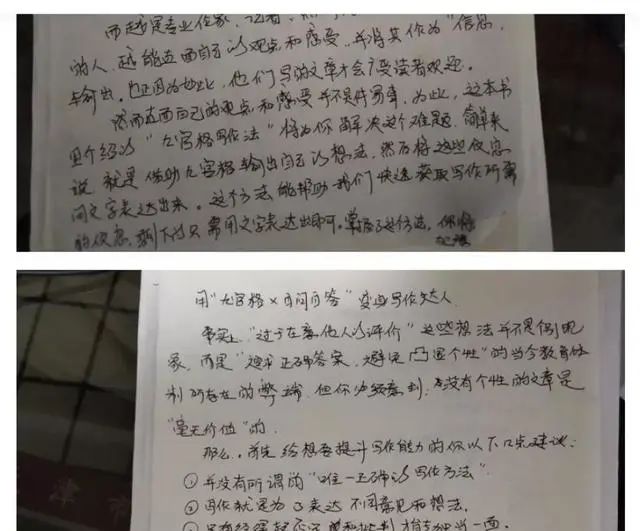 而越是专业作家、记者、
的人，越能直面自己的观点和感受，并将其作为“信息”
输出。也正因为如此，他们写的文章才会广受读者欢迎。
然而直面自己的观点和感受并不是件易事，为此，这本书
介绍的“九宫格写作法”将为你解决这个难题。简单来
说，就是借助九宫格输出自己的想法，然后将这些信息
用文字表达出来。这个方法能帮助我们快速获取写作所需
的信息，剩下的只需用文字表达出即可。掌握了这个方法，你将
用“九宫格×自问自答”变身写作达人
事实上，“过于在意他人的评价”这些想法并不是个别现
象，而是“搜求正确答案，避免凸显个性”的当今教育体
制所存在的弊端，但你必须意识到，没有个性的文章是
“毫无价值”的。
那么，首先给想要提升写作能力的你以下口点建议：
①并没有所谓的“唯一正确的写作方法”。
②写作就是为了表达不同意见和想法。
③只有经得起否定和批判，才能独当一面